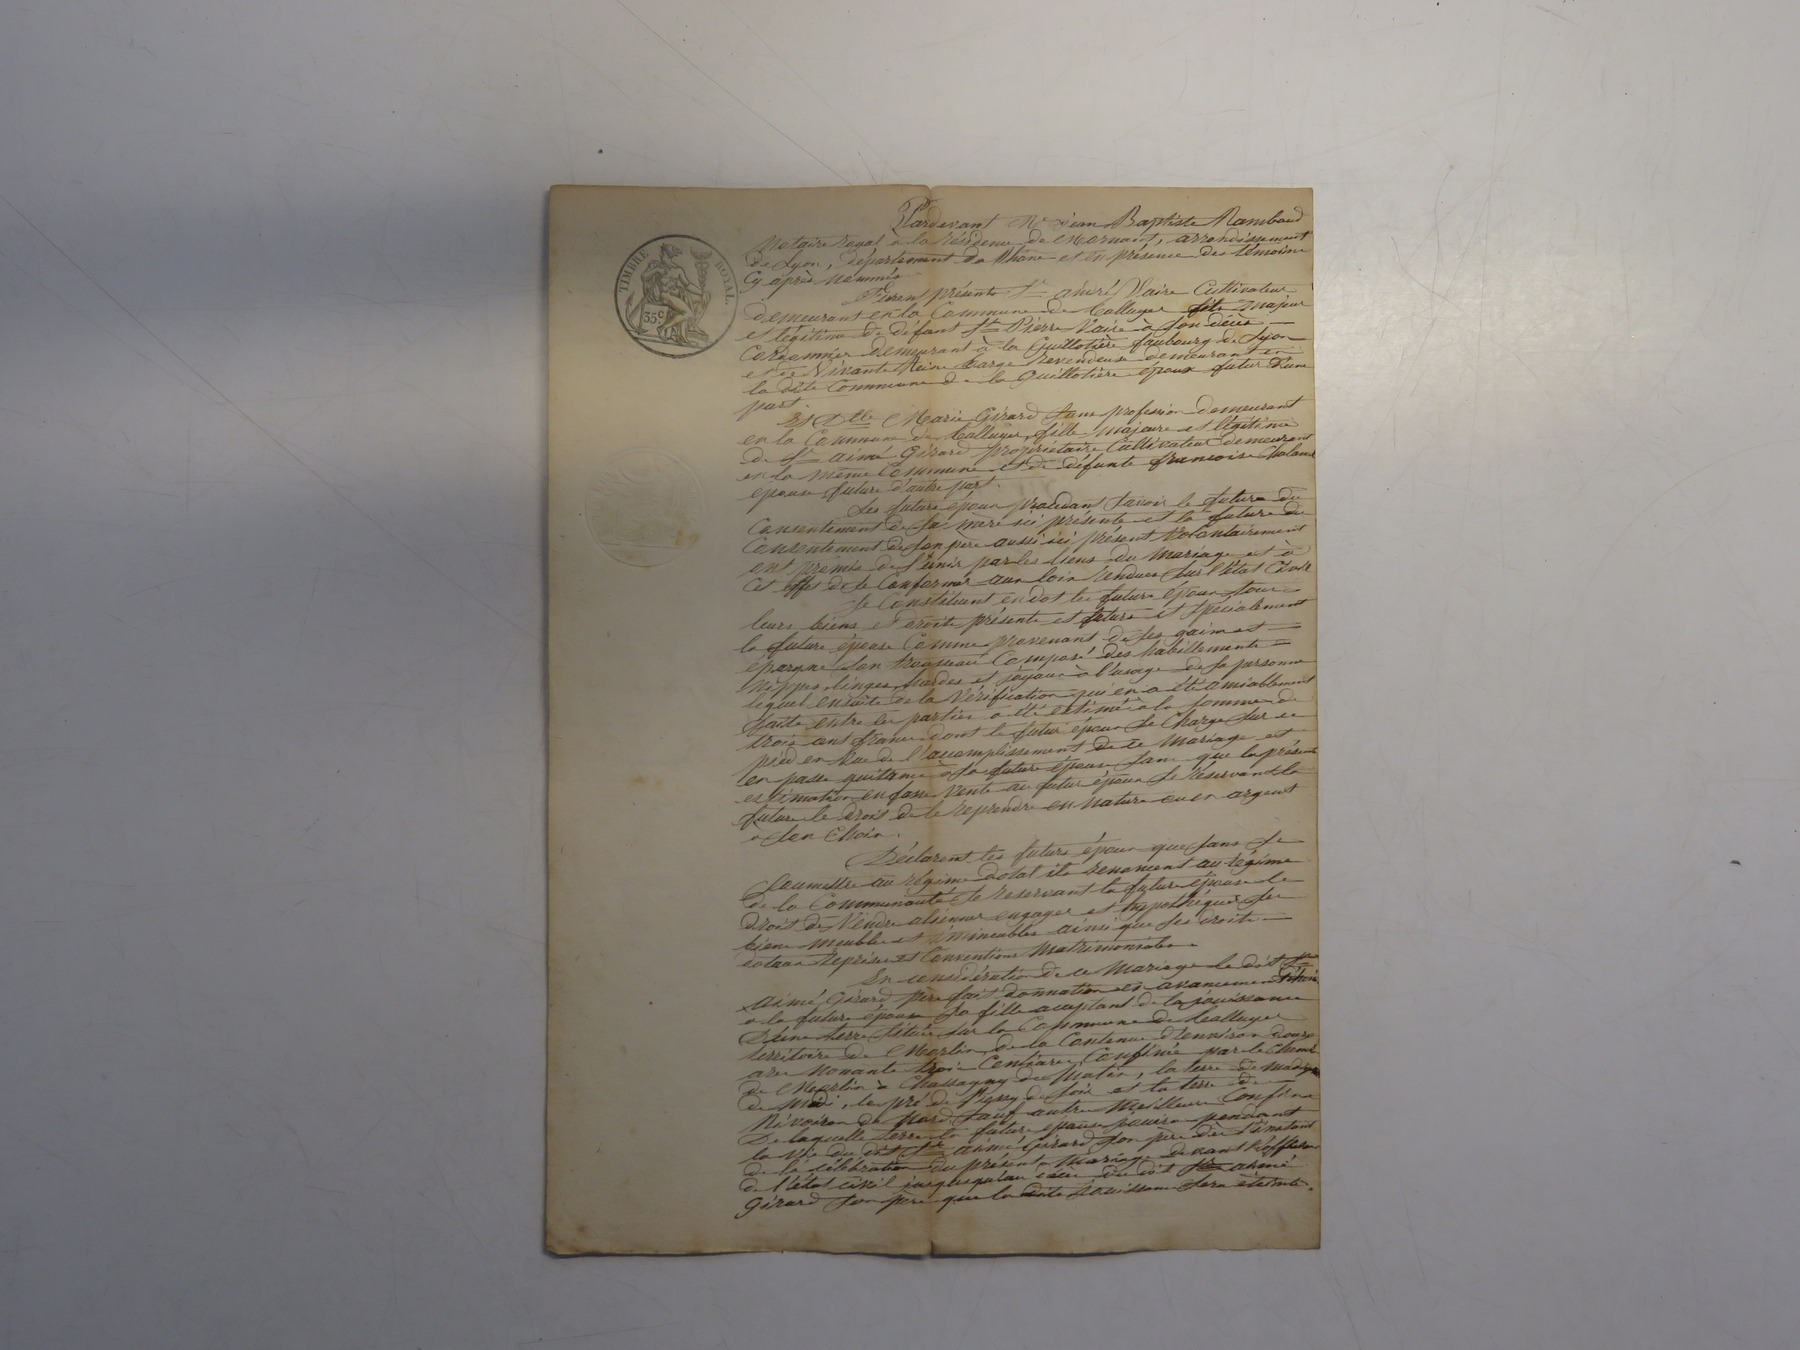 TIMBRE ROYAL
35c
Pardevant Me Jean Baptiste Rambaud
Notaire royal à la résidence de Mornant, arrondissement
de Lyon, département du Rhône et en présence des témoins
Cy après nommés
Furent présents Sr aimé Vaire Cultivateur
demeurant en la Commune de Talluyer fils majeur
et légitime de défunt Sr Pierre Vaire à son décès
Cordonnier demeurant à la Guillotière faubourg de Lyon
et de Vivante Reine Barge revendeuse demeurant en
la dite Commune de la Guillotière époux futur d'une
part
Et Dlle Marie Girard sans profession demeurant
en la Commune de Talluyer, fille majeure et légitime
de Sr aimé Girard propriétaire Cultivateur demeurant
en la même Commune et de défunte francoise
epouse future d'autre part.
Les futurs époux procédant savoir le futur du
Consentement de sa mère ici présente et la future du
Consentement de son père aussi ici présent volontairement
ont promis de s'unir par les liens du mariage et à
cet effet de se Conformer aux loix rendues sur l'état Civil
Se Constituent en dot les futurs époux tous
leurs biens et droits présents et futurs et spécialement
la future épouse Comme provenant de ses gains et
épargne son trousseau Composé des habillements
nippes, linges, hardes et joyaux à l'usage de sa personne
lequel ensuite de la vérification qui en a été amiablement
faite entre les parties a été estimé à la somme de
trois cent francs dont le futur époux se Charge sur ce
pied en vue de l'accomplissement de ce mariage et
en passe quittance à la future épouse sans que la présente
estimation en fasse vente au futur époux se réservant la
future le droit de le reprendre en nature ou en argent
à son Choix.
Déclarent les futurs époux que sans se
soumettre au régime dotal ils renoncent au régime
de la Communauté se reservant la future épouse le
droit de Vendre aliéner engager et hypothéquer ses
biens meubles et immeubles ainsi que ses droits
dotaux reprises et Conventions matrimoniales.
En considération de ce mariage le dit Sr
aimé Girard père fait donnation en avancement
à la future épouse sa fille acceptant de la jouissance
d'une terre située sur la Commune de Talluyer
territoire de Merlin de la Contenue d'environ douze
ares Nonante trois Centiares, Confinée par le Chemin
de Merlin à Chassagny de Matin, la terre de
de midi, le pré de de soir et la terre de
de Nord sauf autres meilleurs Confins
De laquelle terre la future épouse jouira pendant
la vie du dit Sr aimé Girard son père dès l'instant
de la célébration du présent mariage devant l'officier
de l'état civil jusqu'au décès du dit Sr aimé
Girard son père que la dite jouissance sera éteinte.